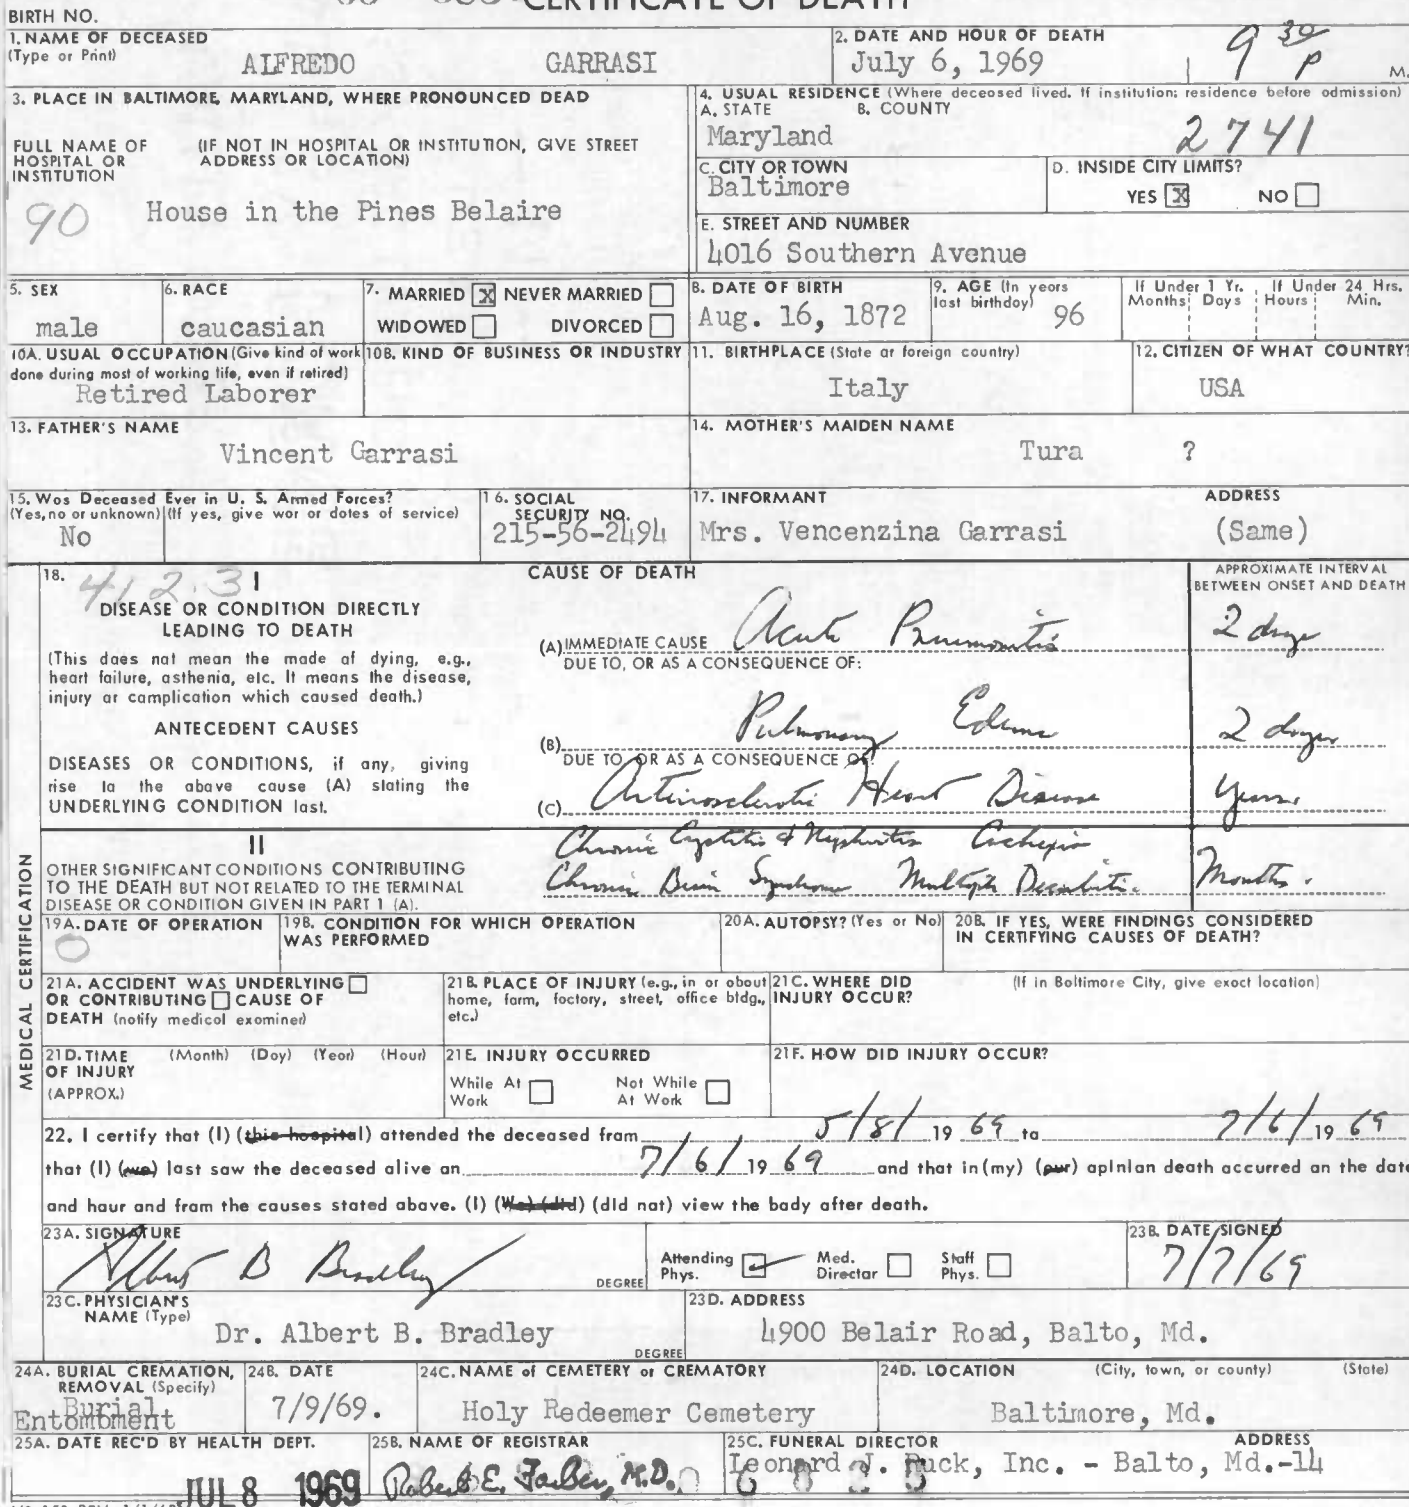 CERTIFICATE OF DEATH
BIRTH NO.
1. NAME OF DECEASED
(Type or Print)
ALFREDO GARRASI
2. DATE AND HOUR OF DEATH
July 6, 1969 9 30 P M.
3. PLACE IN BALTIMORE, MARYLAND, WHERE PRONOUNCED DEAD
FULL NAME OF HOSPITAL OR INSTITUTION
(IF NOT IN HOSPITAL OR INSTITUTION, GIVE STREET ADDRESS OR LOCATION)
90 House in the Pines Belaire
4. USUAL RESIDENCE (Where deceased lived. If institution: residence before admission)
A. STATE B. COUNTY
Maryland 2741
C. CITY OR TOWN
Baltimore
D. INSIDE CITY LIMITS?
YES X NO
E. STREET AND NUMBER
4016 Southern Avenue
5. SEX
male
6. RACE
caucasian
7. MARRIED X NEVER MARRIED
WIDOWED DIVORCED
8. DATE OF BIRTH
Aug. 16, 1872
9. AGE (In years last birthday)
96
If Under 1 Yr. If Under 24 Hrs.
Months Days Hours Min.
10A. USUAL OCCUPATION (Give kind of work done during most of working life, even if retired)
Retired Laborer
10B. KIND OF BUSINESS OR INDUSTRY
11. BIRTHPLACE (State or foreign country)
Italy
12. CITIZEN OF WHAT COUNTRY?
USA
13. FATHER'S NAME
Vincent Garrasi
14. MOTHER'S MAIDEN NAME
Tura ?
15. Was Deceased Ever in U. S. Armed Forces?
(Yes, no or unknown) (If yes, give war or dates of service)
No
16. SOCIAL SECURITY NO.
215-56-2494
17. INFORMANT ADDRESS
Mrs. Vencenzina Garrasi (Same)
MEDICAL CERTIFICATION
18. 412.3 I
DISEASE OR CONDITION DIRECTLY
LEADING TO DEATH
(This does not mean the mode of dying, e.g.,
heart failure, asthenia, etc. It means the disease,
injury or complication which caused death.)
ANTECEDENT CAUSES
DISEASES OR CONDITIONS, if any, giving
rise to the above cause (A) stating the
UNDERLYING CONDITION last.
CAUSE OF DEATH
APPROXIMATE INTERVAL
BETWEEN ONSET AND DEATH
(A) IMMEDIATE CAUSE Acute Pneumonitis 2 days
DUE TO, OR AS A CONSEQUENCE OF:
(B) Pulmonary Edema 2 days
DUE TO, OR AS A CONSEQUENCE OF:
(C) Arteriosclerotic Heart Disease Years.
II
OTHER SIGNIFICANT CONDITIONS CONTRIBUTING
TO THE DEATH BUT NOT RELATED TO THE TERMINAL
DISEASE OR CONDITION GIVEN IN PART 1 (A).
Chronic Cystitis & Nephritis Cachexia
Chronic Brain Syndrome Multiple Decubiti. Months.
19A. DATE OF OPERATION
0
19B. CONDITION FOR WHICH OPERATION
WAS PERFORMED
20A. AUTOPSY? (Yes or No)
20B. IF YES, WERE FINDINGS CONSIDERED
IN CERTIFYING CAUSES OF DEATH?
21A. ACCIDENT WAS UNDERLYING
OR CONTRIBUTING CAUSE OF
DEATH (notify medical examiner)
21B. PLACE OF INJURY (e.g., in or about
home, farm, factory, street, office bldg.,
etc.)
21C. WHERE DID (If in Baltimore City, give exact location)
INJURY OCCUR?
21D. TIME (Month) (Day) (Year) (Hour)
OF INJURY
(APPROX.)
21E. INJURY OCCURRED
While At Work Not While At Work
21F. HOW DID INJURY OCCUR?
22. I certify that (I) (this hospital) attended the deceased from 5/8/ 19 69 to 7/6/ 19 69
that (I) (we) last saw the deceased alive on 7/6/ 19 69 and that in (my) (our) opinion death occurred on the date
and hour and from the causes stated above. (I) (We) (did) (did not) view the body after death.
23A. SIGNATURE
Albert B Bradley DEGREE
Attending Phys. Med. Director Staff Phys.
23B. DATE SIGNED
7/7/69
23C. PHYSICIAN'S
NAME (Type)
Dr. Albert B. Bradley DEGREE
23D. ADDRESS
4900 Belair Road, Balto, Md.
24A. BURIAL CREMATION,
REMOVAL (Specify)
Burial
Entombment
24B. DATE
7/9/69.
24C. NAME of CEMETERY or CREMATORY
Holy Redeemer Cemetery
24D. LOCATION (City, town, or county) (State)
Baltimore, Md.
25A. DATE REC'D BY HEALTH DEPT.
JUL 8 1969
25B. NAME OF REGISTRAR
Robert E. Farber, M.D.
25C. FUNERAL DIRECTOR ADDRESS
Leonard J. Ruck, Inc. - Balto, Md.-14